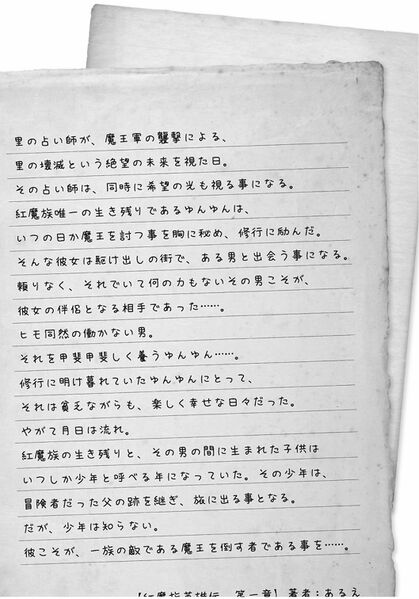 里の占い師が、魔王軍の襲撃による、
里の壊滅という絶望の未来を視た日。
その占い師は、同時に希望の光も視る事になる。
紅魔族唯一の生き残りであるゆんゆんは、
いつの日か魔王を討つ事を胸に秘め、修行に励んだ。
そんな彼女は駆け出しの街で、ある男と出会う事になる。
頼りなく、それでいて何の力もないその男こそが、
彼女の伴侶となる相手であった……。
ヒモ同然の働かない男。
それを甲斐甲斐しく養うゆんゆん……。
修行に明け暮れていたゆんゆんにとって、
それは貧乏ながらも、楽しく幸せな日々だった。
やがて月日は流れ。
紅魔族の生き残りと、その男の間に生まれた子供は
いつしか少年と呼べる年になっていた。その少年は、
冒険者だった父の跡を継ぎ、旅に出る事となる。
だが、少年は知らない。
彼こそが、一族の敵である魔王を倒す者である事を……。
【紅魔族英雄伝 第一章】著者：あるえ